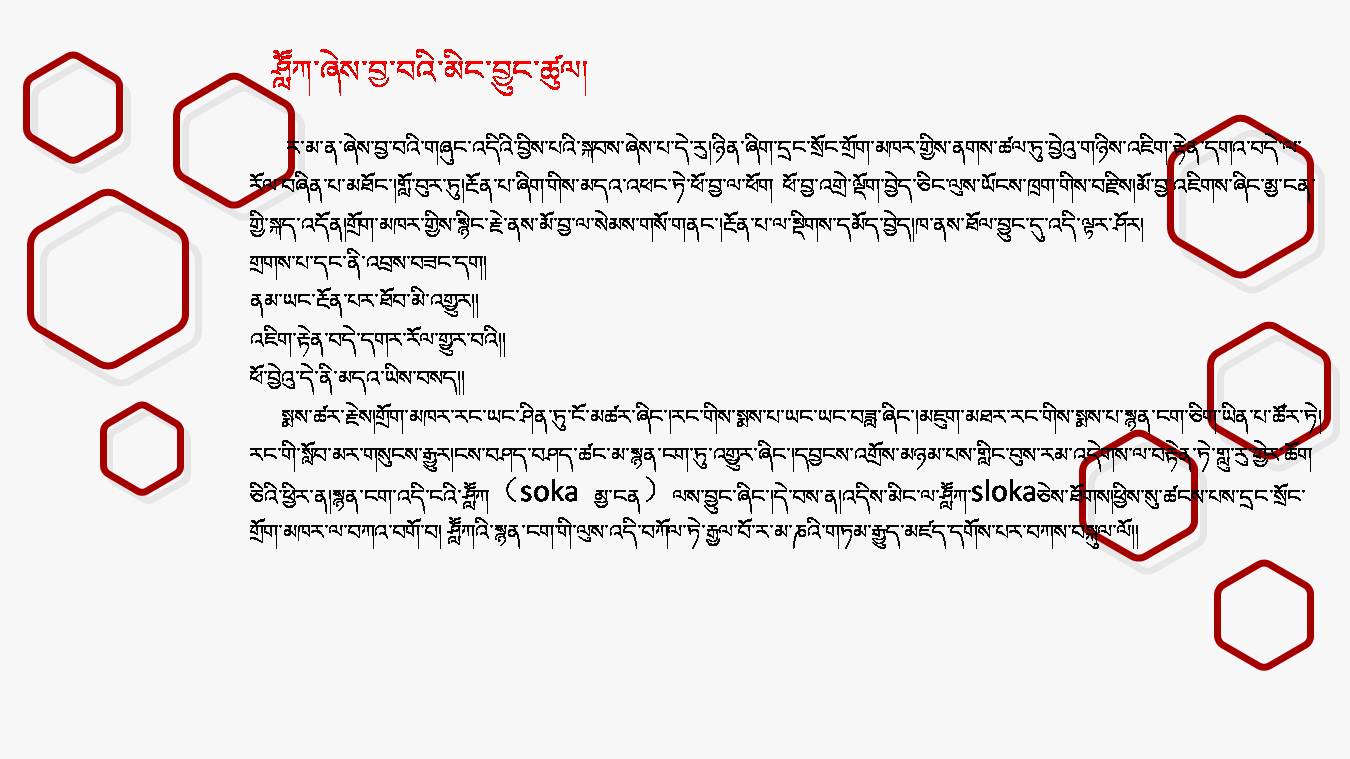 ཤློཀ་ཞེས་བྱ་བའི་མིང་བྱུང་ཚུལ།
ར་མ་ན་ཞེས་བྱ་བའི་གཞུང་འདིའི་བྲིས་པའི་སྐབས་ཞེས་པ་དེ་རུ།ཉིན་ཞིག་དྲང་སྲོང་གྲོག་མཁར་གྱིས་ནགས་ཚལ་ཏུ་བྱེའུ་གཉིས་འཇིག་རྟེན་དགའ་བདེ་ལ་
རོལ་བཞིན་པ་མཐོང་།གློ་བུར་ཏུ།རྔོན་པ་ཞིག་གིས་མདའ་འཕང་ཏེ་ཕོ་བྱ་ལ་ཕོག ཕོ་བྱ་འགྲེ་ལྡོག་བྱེད་ཅིང་ལུས་ཡོངས་ཁྲག་གིས་བརྫིས།མོ་བྱ་འཇིགས་ཞིང་མྱ་ངན་
གྱི་སྐད་འདོན།གྲོག་མཁར་གྱིས་སྙིང་རྗེ་ནས་མོ་བྱ་ལ་སེམས་གསོ་གནང་།རྔོན་པ་ལ་སྡིགས་དམོད་བྱེད།ཁ་ནས་ཐོལ་བྱུང་དུ་འདི་ལྟར་ཤོར།
གྲགས་པ་དང་ནི་འབྲས་བཟང་དག།
ནམ་ཡང་རྔོན་པར་ཐོབ་མི་འགྱུར།།
འཇིག་རྟེན་བདེ་དགར་རོལ་གྱུར་བའི།།
ཕོ་བྱེའུ་དེ་ནི་མདའ་ཡིས་བསད།།
སྨྲས་ཚར་རྗེས།གྲོག་མཁར་རང་ཡང་ཤིན་ཏུ་ངོ་མཚར་ཞིང་།རང་གིས་སྨྲས་པ་ཡང་ཡང་བཟླ་ཞིང་།མཇུག་མཐར་རང་གིས་སྨྲས་པ་སྙན་ངག་ཅིག་ཡིན་པ་ཚོར་ཏེ།
རང་གི་སློབ་མར་གསུངས་རྒྱུར།ངས་བཤད་བཤད་ཚང་མ་སྙན་ངག་ཏུ་འགྱུར་ཞིང་།དབྱངས་འགྲོས་མཉམ་པས་གླིང་བུས་རམ་འདེགས་ལ་བརྟེན་ཏེ་གླུ་རུ་གྱེར་ཆོག
ཅིའི་ཕྱིར་ན།སྙན་ངག་འདི་ངའི་ཤློཀ （soka མྱ་ངན） ལས་བྱུང་ཞིང་།དེ་བས་ན།འདིས་མིང་ལ་ཤློཀ་slokaཅེས་ཐོགས།ཕྱིས་སུ་ཚངས་པས་དྲང་སྲོང་
གྲོག་མཁར་ལ་བཀའ་བགོ་བ། ཤློཀའི་སྙན་ངག་གི་ལུས་འདི་བཀོལ་ཏེ་རྒྱལ་པོ་ར་མ་ཎའི་གཏམ་རྒྱུད་མཛད་དགོས་པར་བཀས་བསྐུལ་ལོ།།